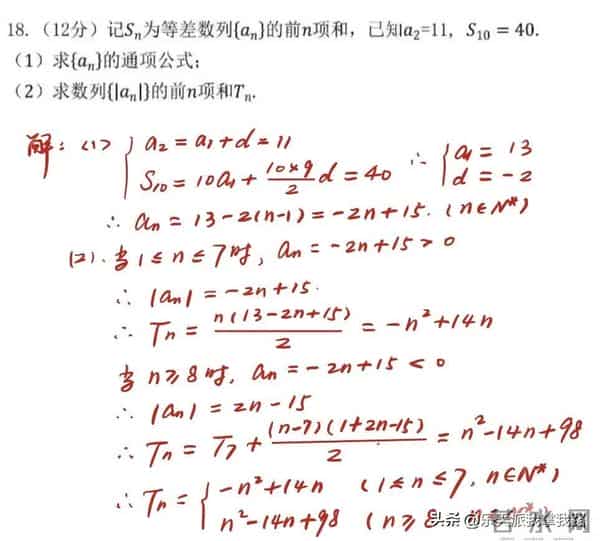 18.（12分）记Sₙ为等差数列{aₙ}的前n项和，已知a₂=11, S₁₀ = 40.
（1）求{aₙ}的通项公式;
（2）求数列{|aₙ|}的前n项和Tₙ.
解: (1) { a₂ = a₁ + d = 11
S₁₀ = 10a₁ + (10×9)/2 d = 40 ∴ { a₁ = 13
d = -2
∴ aₙ = 13 - 2(n-1) = -2n + 15. (n∈N*)
(2). 当 1 ≤ n ≤ 7时, aₙ = -2n+15 > 0
∴ |aₙ| = -2n+15.
∴ Tₙ = n(13-2n+15)/2 = -n²+14n
当 n≥8时, aₙ = -2n+15 < 0
∴ |aₙ| = 2n-15
∴ Tₙ = T₇ + (n-7)(1+2n-15)/2 = n²-14n+98
∴ Tₙ = { -n²+14n (1≤n≤7, n∈N*)
n²-14n+98 (n≥8
头条